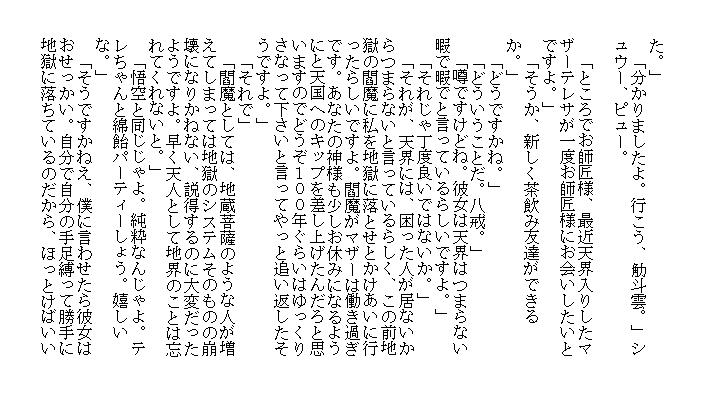 た。」
「分かりましたよ。行こう、觔斗雲。」シ
ュウー、ピュー。
「ところでお師匠様、最近天界入りしたマ
ザーテレサが一度お師匠様にお会いしたいと
ですよ。」
「そうか、新しく茶飲み友達ができる
か。」
「どうですかね。」
「どういうことだ。八戒。」
「噂ですけどね。彼女は天界はつまらない
暇で暇でと言っているらしいですよ。」
「それじゃ丁度良いではないか。」
「それが、天界には、困った人が居ないか
らつまらないと言っているらしく、この前地
獄の閻魔に私を地獄に落とせとかけあいに行
ったらしいですよ。閻魔がマザーは働き過ぎ
です。あなたの神様も少しお休みになるよう
にと天国へのキップを差し上げたんだろと思
いますのでどうぞ１００年ぐらいはゆっくり
さなって下さいと言ってやっと追い返したそ
うですよ。」
「それで」
「閻魔としては、地蔵菩薩のような人が増
えてしまっては地獄のシステムそのものの崩
壊になりかねない、説得するのに大変だった
ようですよ。早く天人として地界のことは忘
れてくれないと。」
「悟空と同じじゃよ。純粋なんじゃよ。テ
レちゃんと綿飴パーティーしょう。嬉しい
な。」
「そうですかねえ、僕に言わせたら彼女は
おせっかい。自分で自分の手足縛って勝手に
地獄に落ちているのだから、ほっとけばいい